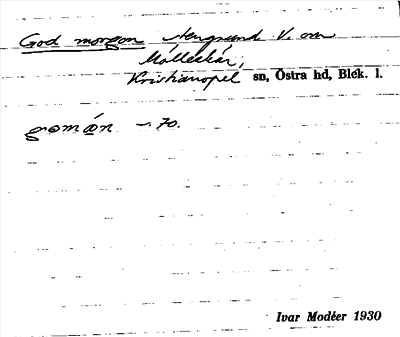 God morgon stengrund V. om
Mölleskär,
Kristianopel sn, Östra hd, Blek. l.
gomón – 70.
Ivar Modéer 1930